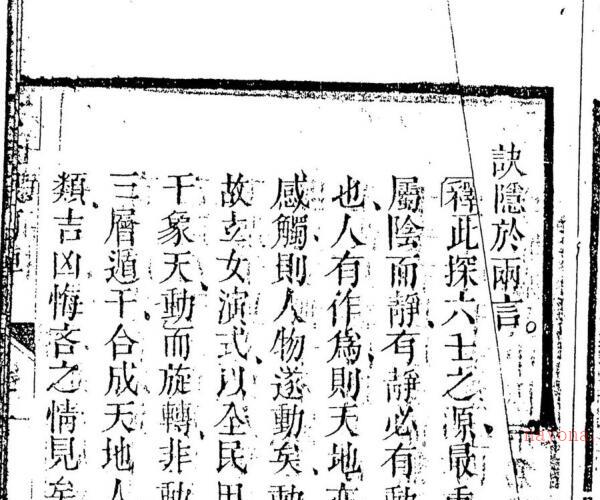 訣隱於兩言。
釋此探六壬之源最
屬陰而靜、有靜必有動
也、人有作爲則天地亦
感觸則人物遂動矣、動
故立女演式、以全民用
干象天、動而旋轉、非動
三層遁干合成天地人
類、吉凶悔吝之情見矣
nayona